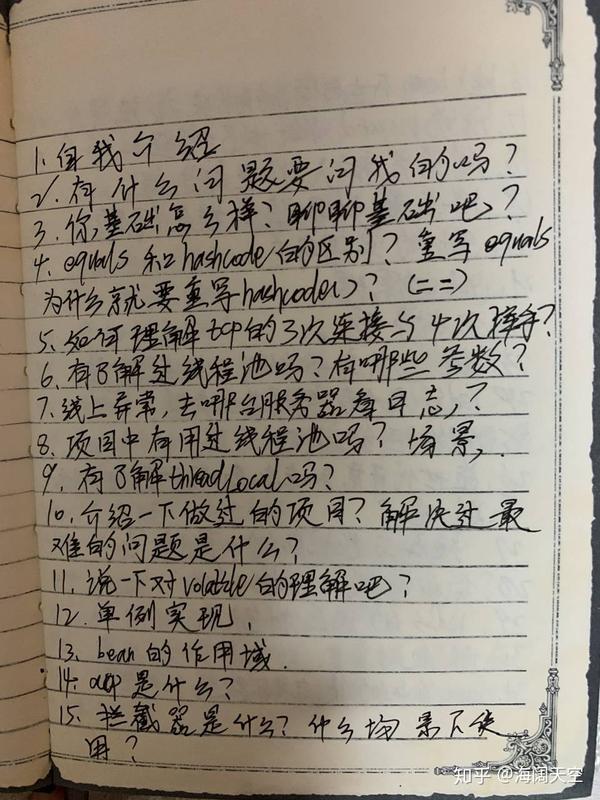 1. 自我介绍
2. 有什么问题要问我的吗?
3. 你基础怎么样? 聊聊基础吧?
4. equals 和 hashcode 的区别? 重写 equals
为什么就要重写 hashcode()? (==)
5. 如何理解 tcp 的 3次连接与 4次挥手?
6. 有了解过线程池吗? 有哪些参数?
7. 线上异常, 去哪台服务器看日志?
8. 项目中有用过线程池吗? 场景.
9. 有了解 threadLocal 吗?
10. 介绍一下做过的项目? 解决过最
难的问题是什么?
11. 说一下对 volatile 的理解吧?
12. 单例实现.
13. bean 的作用域.
14. aop 是什么?
15. 拦截器是什么? 什么场景下使
用?
知乎 @海阔天空